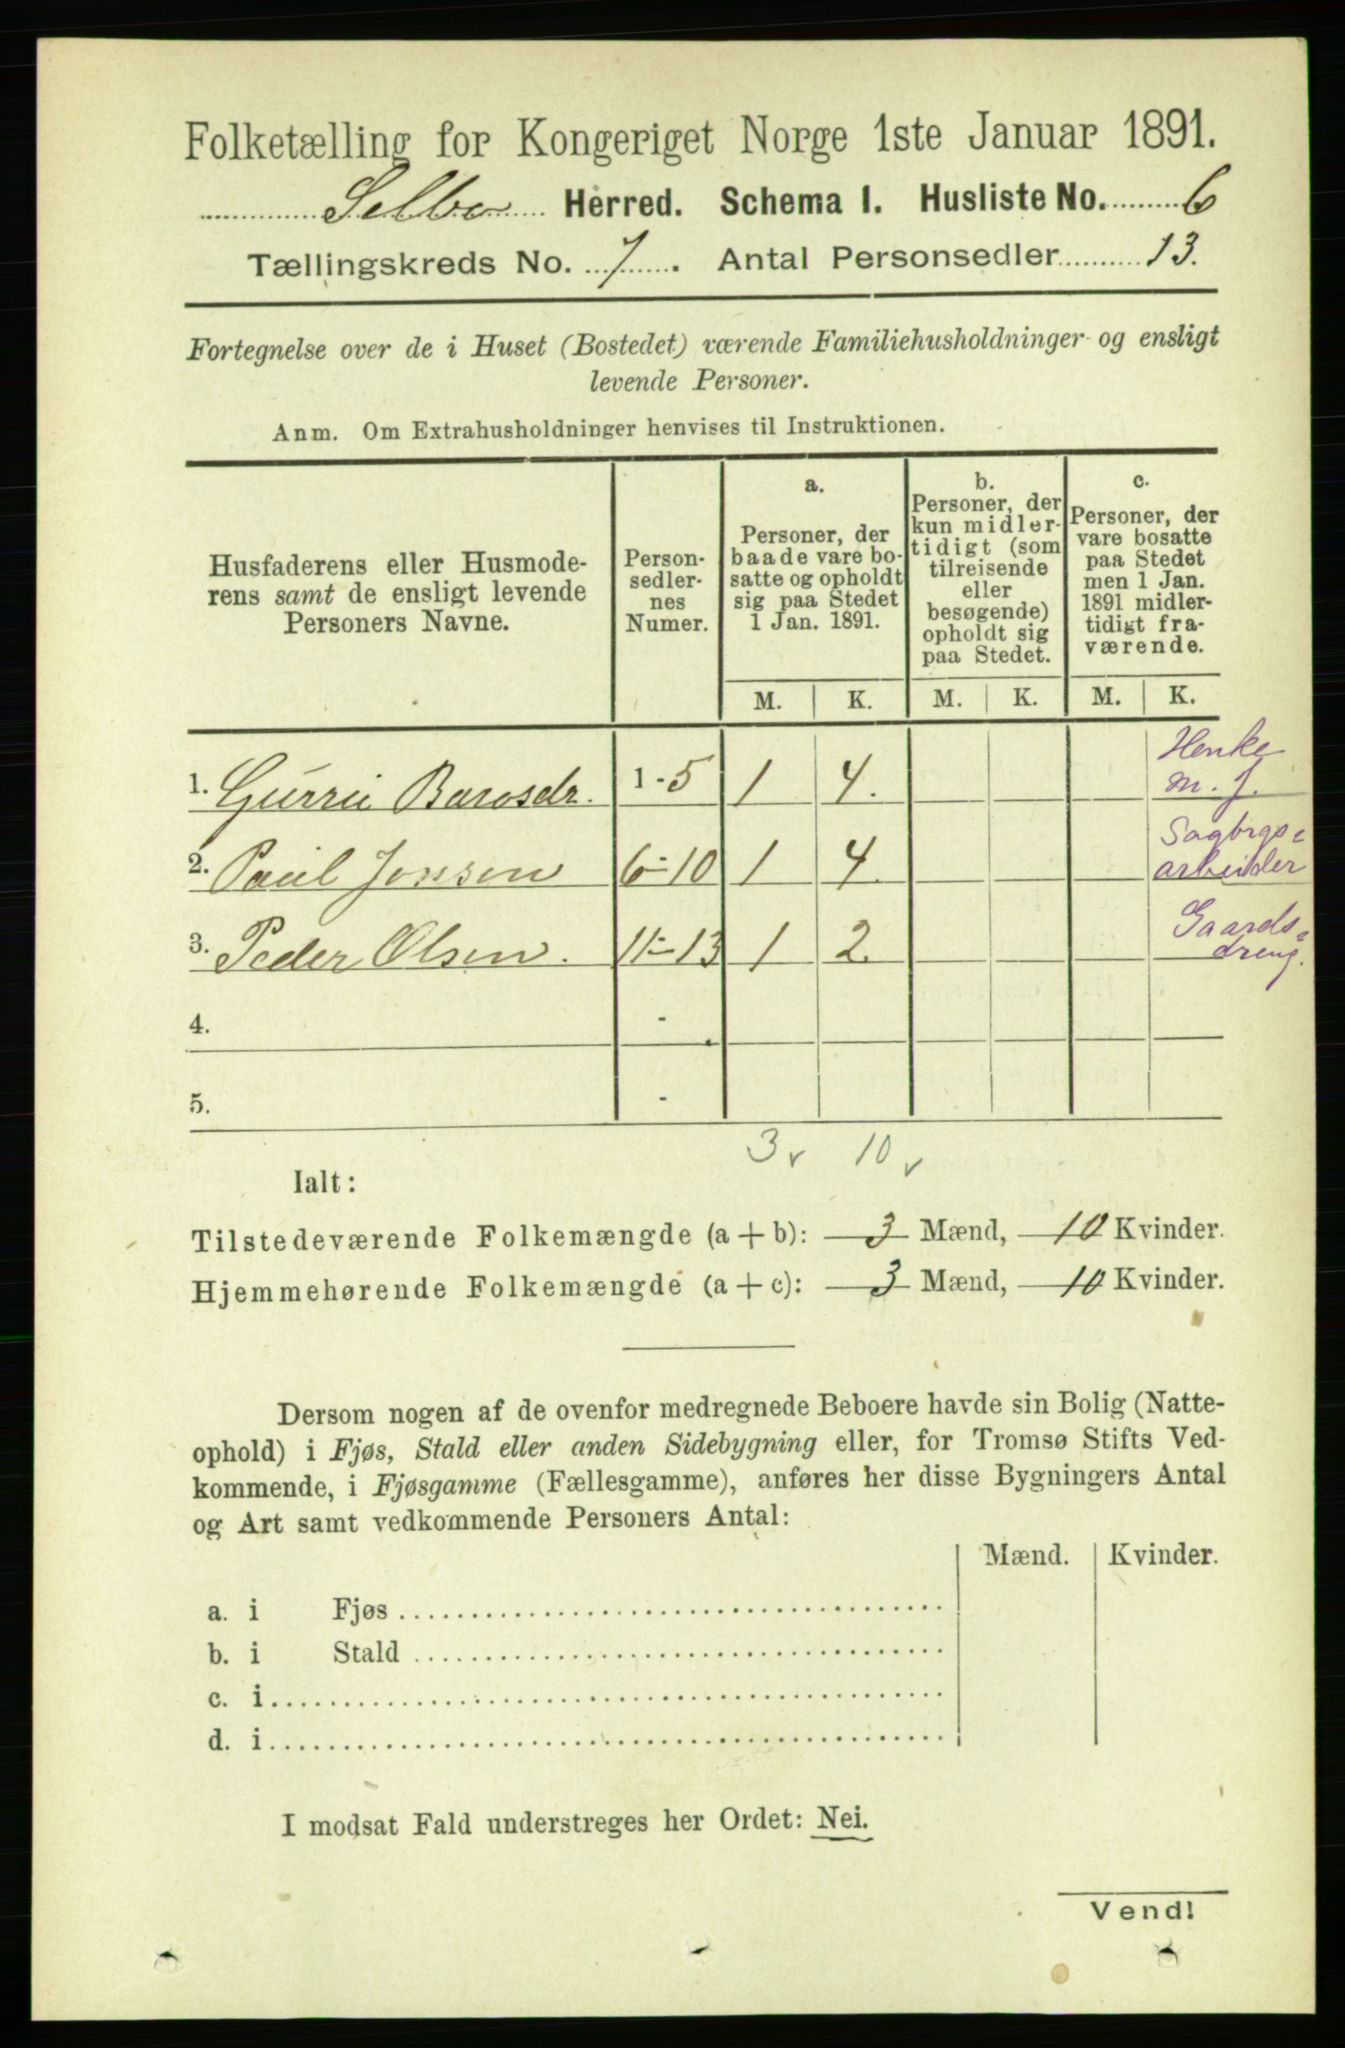 Folketælling for Kongeriget Norge 1ste Januar 1891.
Selbo Herred. Schema 1. Husliste No. 6
Tællingskreds No. 7. Antal Personsedler 13.
Fortegnelse over de i Huset (Bostedet) værende Familiehusholdninger og ensligt
levende Personer.
Anm. Om Extrahusholdninger henvises til Instruktionen.
Husfaderens eller Husmode-
rens samt de ensligt levende
Personers Navne.
Person-
sedler-
nes
Numer.
a.
Personer, der
baade vare bo-
satte og opholdt
sig paa Stedet
1 Jan. 1891.
b.
Personer, der
kun midler-
tidigt (som
tilreisende
eller
besøgende)
opholdt sig
paa Stedet.
c.
Personer, der
vare bosatte
paa Stedet
men 1 Jan.
1891 midler-
tidigt fra-
værende.
M. K. M. K. M. K.
1. Gurri Barosdr. 1-5 1 4. Henke
m. J.
2. Paul Jonsen 6-10 1 4. Sagbrgs-
arbeider
3. Peder Olsen. 11-13 1 2. Gaards-
dreng.
4. -
5. -
3 v 10 v
Ialt:
Tilstedeværende Folkemængde (a + b): 3 Mænd, 10 Kvinder.
Hjemmehørende Folkemængde (a + c): 3 Mænd, 10 Kvinder.
Dersom nogen af de ovenfor medregnede Beboere havde sin Bolig (Natte-
ophold) i Fjøs, Stald eller anden Sidebygning eller, for Tromsø Stifts Ved-
kommende, i Fjøsgamme (Fællesgamme), anføres her disse Bygningers Antal
og Art samt vedkommende Personers Antal:
Mænd. Kvinder.
a. i Fjøs
b. i Stald
c. i
d. i
I modsat Fald understreges her Ordet: Nei.
Vend!